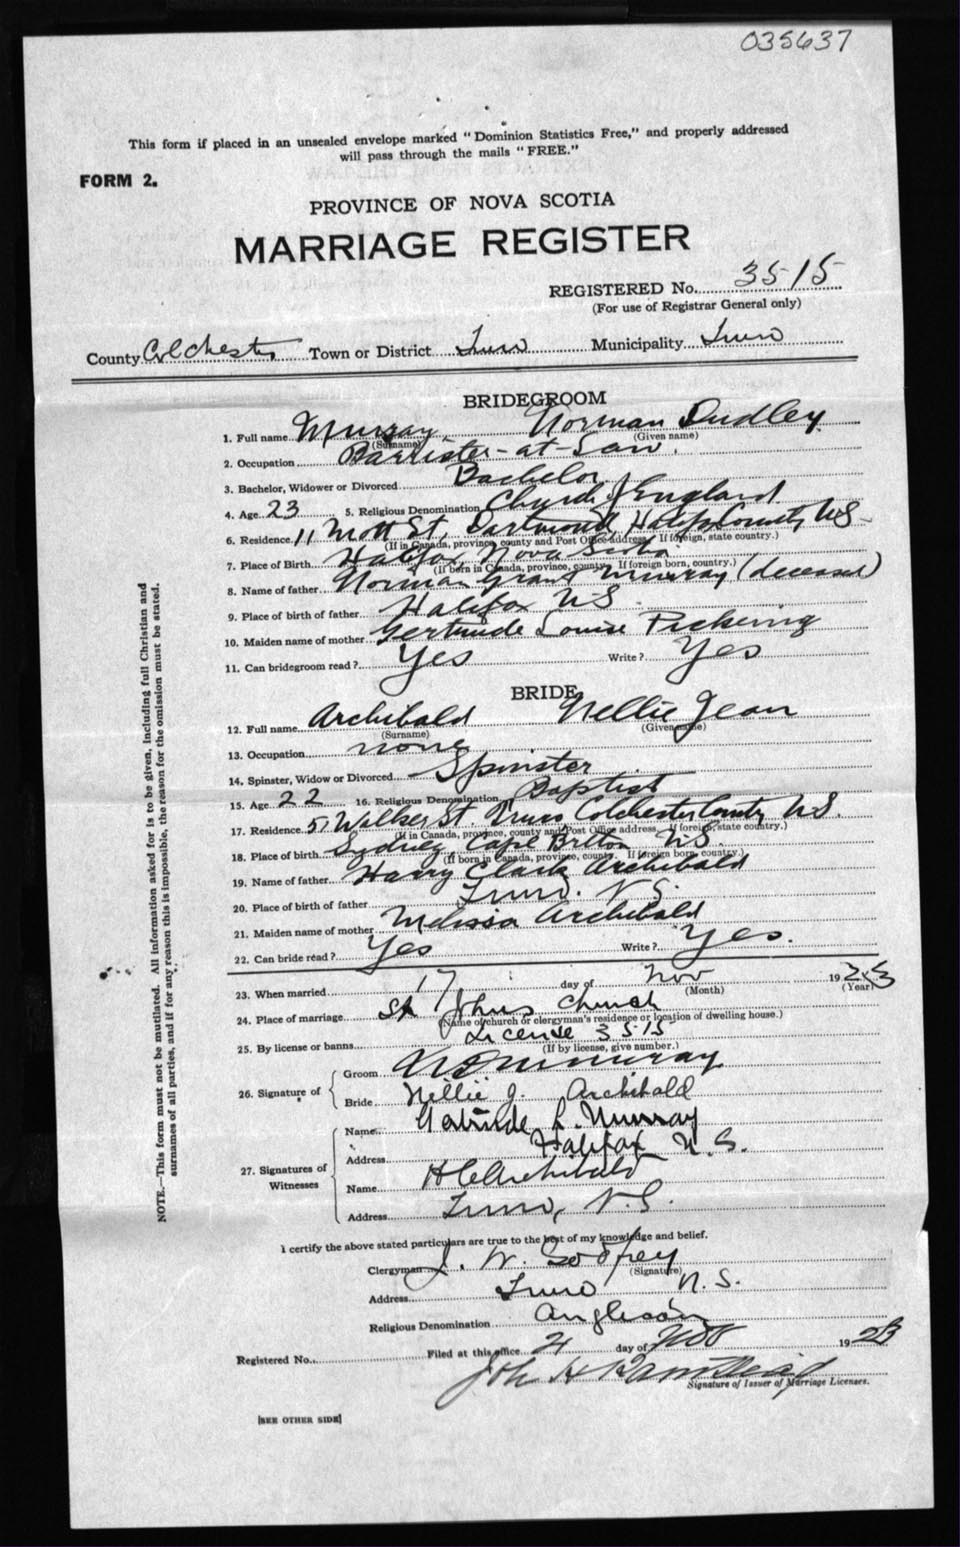 035637
This form if placed in an unsealed envelope marked "Dominion Statistics Free," and properly addressed
will pass through the mails "FREE."
FORM 2.
PROVINCE OF NOVA SCOTIA
MARRIAGE REGISTER
REGISTERED No. 3515
(For use of Registrar General only)
County Colchester Town or District Truro Municipality Truro
BRIDEGROOM
1. Full name Murray Norman Dudley
(Surname) (Given name)
2. Occupation Barrister-at-Law.
3. Bachelor, Widower or Divorced Bachelor
4. Age 23 5. Religious Denomination Church of England
6. Residence 11 Mott St, Dartmouth, Halifax County NS-
(If in Canada, province, county and Post Office address. If foreign, state country.)
7. Place of Birth Halifax, Nova Scotia
(If born in Canada, province, county. If foreign born, country.)
8. Name of father Norman Grant Murray (deceased)
9. Place of birth of father Halifax NS.
10. Maiden name of mother Gertrude Louise Pickering
11. Can bridegroom read? Yes Write? Yes
BRIDE
12. Full name Archibald Nellie Jean
(Surname) (Given name)
13. Occupation none
14. Spinster, Widow or Divorced Spinster
15. Age 22 16. Religious Denomination Baptist
17. Residence 51 St. Truro Colchester County NS.
(If in Canada, province, county and Post Office address. If foreign, state country.)
18. Place of birth Sydney, Cape Breton NS.
(If born in Canada, province, county. If foreign born, country.)
19. Name of father Harry Clark Archibald
20. Place of birth of father Truro. N.S.
21. Maiden name of mother Melissa Archibald
22. Can bride read? Yes Write? Yes.
23. When married 17 day of Nov 192
(Month) (Year)
24. Place of marriage St Johns Church
(Name of church or clergyman's residence or location of dwelling house.)
25. By license or banns License 3515
(If by license, give number.)
26. Signature of
Groom N D Murray
Bride Nellie J. Archibald
27. Signatures of Witnesses
Name Gertrude L. Murray
Address Halifax N.S.
Name H C Archibald
Address Truro, N.S.
I certify the above stated particulars are true to the best of my knowledge and belief.
Clergyman J. W. Godfrey
(Signature)
Address Truro N.S.
Religious Denomination Anglican
Registered No. Filed at this office day of Nov 19
Signature of Issuer of Marriage Licenses.
[SEE OTHER SIDE]
NOTE.—This form must not be mutilated. All information asked for is to be given, including full Christian and
surnames of all parties, and if for any reason this is impossible, the reason for the omission must be stated.